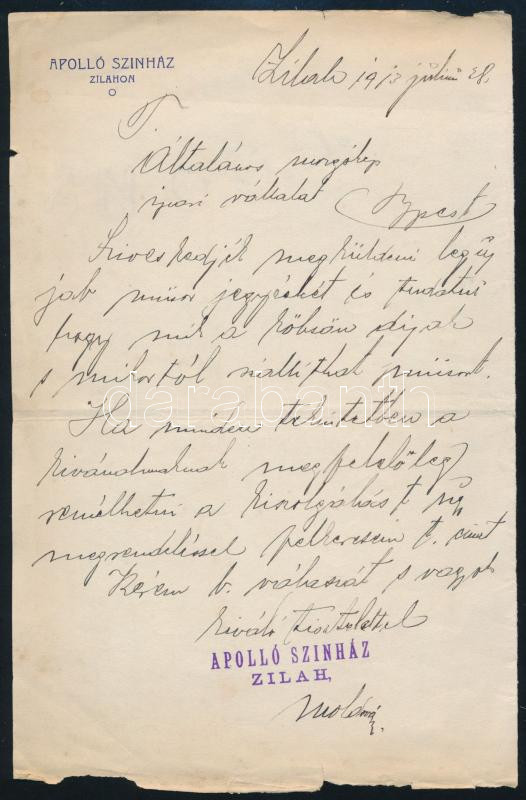 APOLLÓ SZINHÁZ
ZILAHON
Zilah 1913 július 28.
T.
Általános mozgókép
ipari vállalat
Bpest
Sziveskedjék megküldeni legúj
jab műsor jegyzékét és tudatni
hogy mik a kölcsön dijak
s mikortól szállithat műsort.
Ha minden tekintetben a
kivánalmaknak megfelelőleg
remélhetni a kiszolgálást úg
megrendeléssel felkeresem t. cimét
Kérem b. válaszát s vagyok
kiváló tisztelettel
APOLLÓ SZINHÁZ
ZILAH,
darabanth